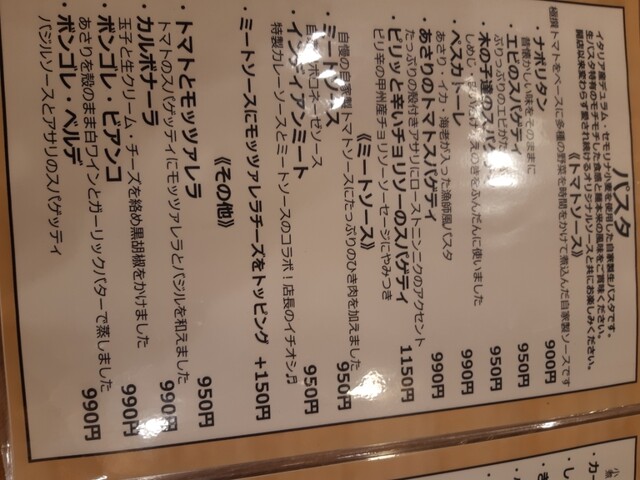 パスタ
イタリア産デュラム・セモリナ小麦を使用した自家製生パスタです。
生パスタ特有のモチモチした食感と麺本来の風味をご賞味ください。
開店以来変わらず愛され続けるオリジナルソースと共にお楽しみください。
《トマトソース》
極撰トマトをベースに多種の野菜を時間をかけて煮込んだ自家製ソースです
・ナポリタン 900円
昔懐かしい味をその
・エビのスパゲティ 950円
ぷりっぷりのエビがた
・木の子達のスパゲ 950円
しめじ・ えのきをふんだんに使いました
・ペスカトーレ 990円
あさり・イカ・海老が入った漁師風パスタ
・あさりのトマトスパゲティ 990円
たっぷりの殻付きアサリにローストニンニクのアクセント
・ピリッと辛いチョリソーのスパゲティ 1150円
ピリ辛の甲州産チョリソーソーセージにやみつき
《ミートソース》
自慢の自家製トマトソースにたっぷりのひき肉を加えました
・ミートソース 950円
自 ボロネーゼソース
・インディアンミート 950円
特製カレーソースとミートソースのコラボ!店長のイチオシ♬
・ミートソースにモッツァレラチーズをトッピング +150円
《その他》
・トマトとモッツァレラ 950円
トマトのスパゲッティにモッツァレラとバジルを和えました
・カルボナーラ 990円
玉子と生クリーム・チーズを絡め黒胡椒をかけました
・ボンゴレ・ビアンコ 990円
あさりを殻のまま白ワインとガーリックバターで蒸しました
・ボンゴレ・ベルデ 990円
バジルソースとアサリのスパゲッティ